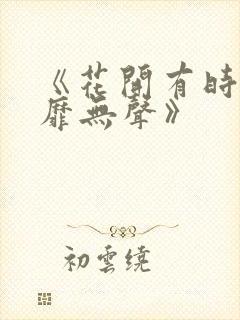 《花開有時
靡無聲》
初雲繞